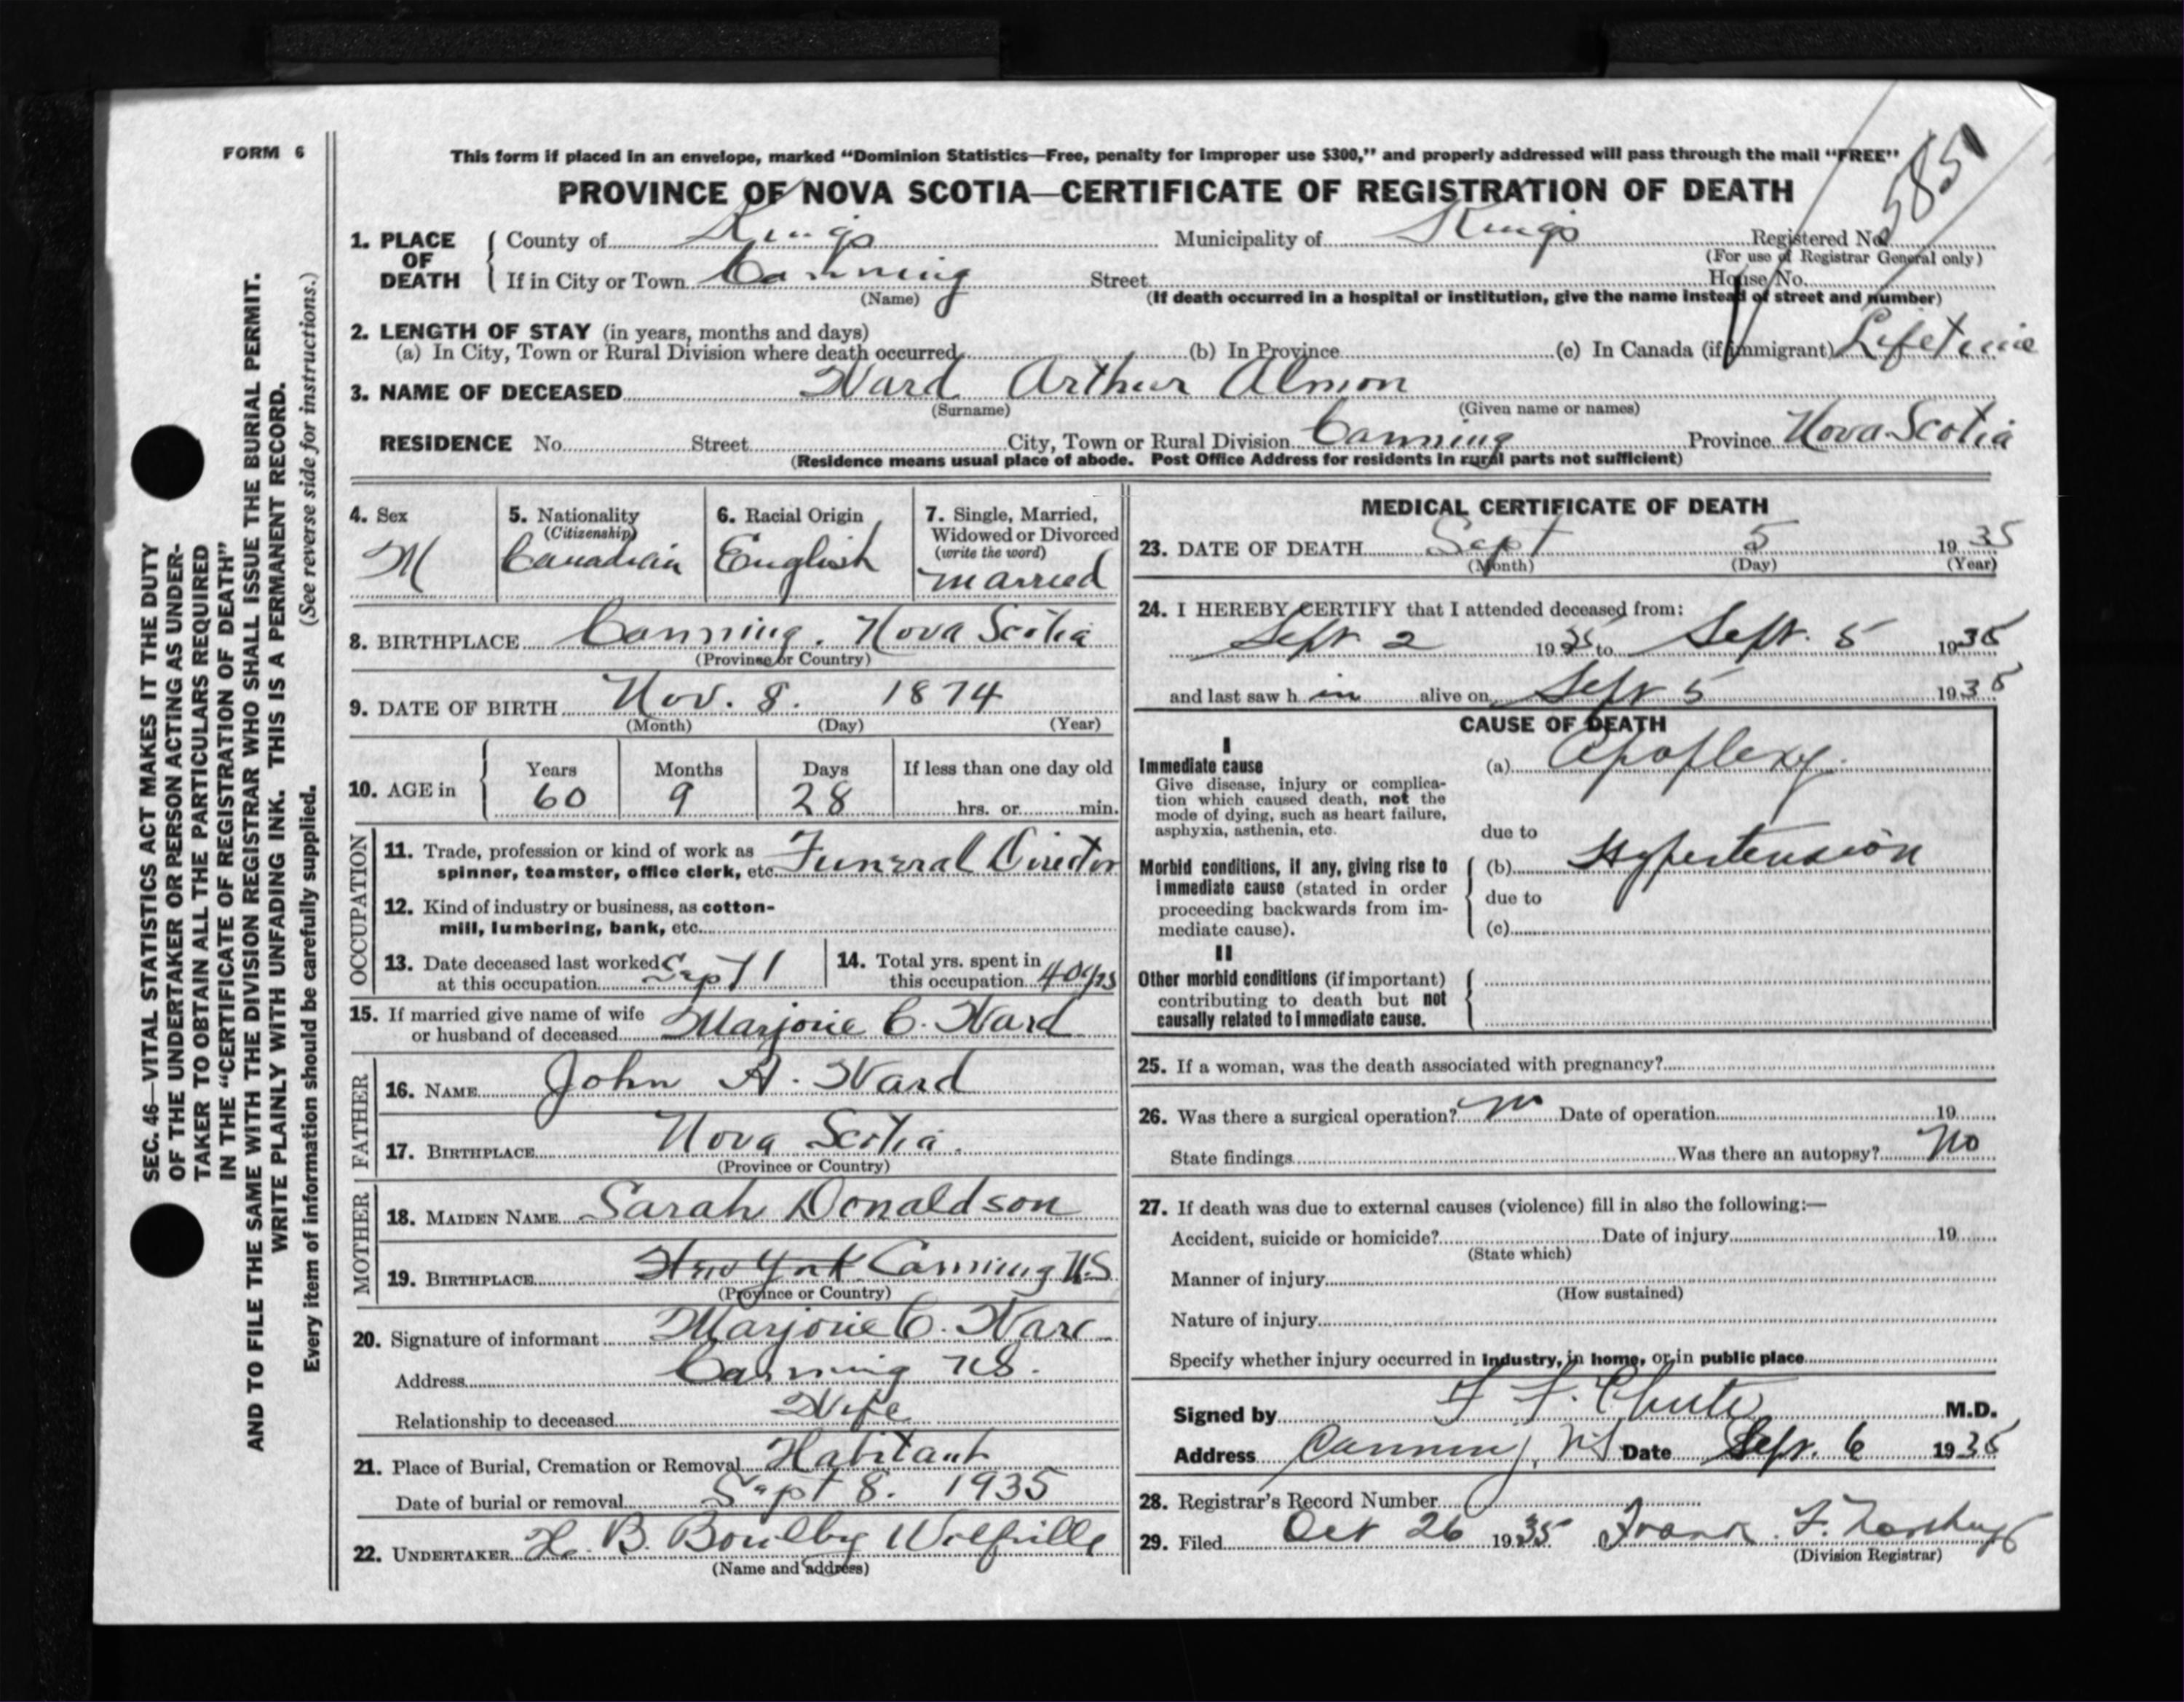 FORM 6
This form if placed in an envelope, marked "Dominion Statistics—Free, penalty for improper use $300," and properly addressed will pass through the mail "FREE"
PROVINCE OF NOVA SCOTIA—CERTIFICATE OF REGISTRATION OF DEATH
585
1. PLACE OF DEATH { County of Kings Municipality of Kings Registered No.
(For use of Registrar General only)
If in City or Town Canning Street House No.
(Name) (If death occurred in a hospital or institution, give the name instead of street and number)
2. LENGTH OF STAY (in years, months and days)
(a) In City, Town or Rural Division where death occurred (b) In Province (c) In Canada (if immigrant) Lifetime
3. NAME OF DECEASED Ward Arthur Almon
(Surname) (Given name or names)
RESIDENCE No. Street City, Town or Rural Division Canning Province Nova Scotia
(Residence means usual place of abode. Post Office Address for residents in rural parts not sufficient)
4. Sex M
5. Nationality (Citizenship) Canadian
6. Racial Origin English
7. Single, Married, Widowed or Divorced (write the word) married
8. BIRTHPLACE Canning. Nova Scotia
(Province or Country)
9. DATE OF BIRTH Nov. 8. 1874
(Month) (Day) (Year)
10. AGE in { Years 60 Months 9 Days 28 If less than one day old hrs. or min.
OCCUPATION
11. Trade, profession or kind of work as
spinner, teamster, office clerk, etc. Funeral Director
12. Kind of industry or business, as cotton-
mill, lumbering, bank, etc.
13. Date deceased last worked
at this occupation Sept 1
14. Total yrs. spent in
this occupation 40 yrs
15. If married give name of wife
or husband of deceased Marjorie C. Ward
FATHER
16. NAME John A. Ward
17. BIRTHPLACE Nova Scotia.
(Province or Country)
MOTHER
18. MAIDEN NAME Sarah Donaldson
19. BIRTHPLACE New York Canning N.S
(Province or Country)
20. Signature of informant Marjorie C. Ward
Address Canning NS.
Relationship to deceased Wife
21. Place of Burial, Cremation or Removal Habitant
Date of burial or removal Sept 8. 1935
22. UNDERTAKER H. B. Wolfville
(Name and address)
MEDICAL CERTIFICATE OF DEATH
23. DATE OF DEATH Sept 5 1935
(Month) (Day) (Year)
24. I HEREBY CERTIFY that I attended deceased from:
Sept. 2 1935 to Sept. 5 1935
and last saw h im alive on Sept 5 1935
CAUSE OF DEATH
I
Immediate cause
Give disease, injury or complica-
tion which caused death, not the
mode of dying, such as heart failure,
asphyxia, asthenia, etc.
(a) Apoplexy.
due to
Morbid conditions, if any, giving rise to
immediate cause (stated in order
proceeding backwards from im-
mediate cause).
(b) Hypertension
due to
(c)
II
Other morbid conditions (if important)
contributing to death but not
causally related to immediate cause.
25. If a woman, was the death associated with pregnancy?
26. Was there a surgical operation? no Date of operation 19
State findings Was there an autopsy? No
27. If death was due to external causes (violence) fill in also the following:—
Accident, suicide or homicide? Date of injury 19
(State which)
Manner of injury
(How sustained)
Nature of injury
Specify whether injury occurred in industry, in home, or in public place
Signed by F F. Chute M.D.
Address Canning, NS Date Sept. 6 1935
28. Registrar's Record Number
29. Filed Oct 26 1935 Frank F.
(Division Registrar)
SEC. 46—VITAL STATISTICS ACT MAKES IT THE DUTY
OF THE UNDERTAKER OR PERSON ACTING AS UNDER-
TAKER TO OBTAIN ALL THE PARTICULARS REQUIRED
IN THE "CERTIFICATE OF REGISTRATION OF DEATH"
AND TO FILE THE SAME WITH THE DIVISION REGISTRAR WHO SHALL ISSUE THE BURIAL PERMIT.
WRITE PLAINLY WITH UNFADING INK. THIS IS A PERMANENT RECORD.
Every item of information should be carefully supplied. (See reverse side for instructions.)